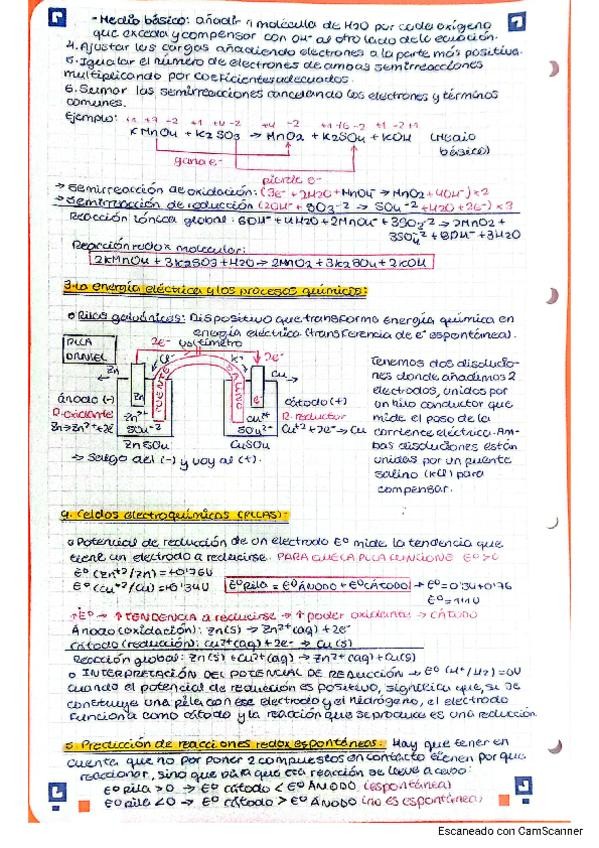 - Medio básico: añadir 1 molécula de H2O por cada oxígeno
que exceda y compensar con OH- al otro lado de la ecuación.
4. Ajustar las cargas añadiendo electrones a la parte más positiva.
5. Igualar el número de electrones de ambas semirreacciones
multiplicando por coeficientes adecuados.
6. Sumar las semirreacciones cancelando los electrones y términos
comunes.
Ejemplo: +1 +7 -2 +1 +4 -2 +4 -2 +1 +6 -2 +1 -2 +1
KMnO4 + K2SO3 → MnO2 + K2SO4 + KOH (Medio
básico)
gana e-
pierde e-
→ Semirreacción de oxidación: (3e- + 2H2O + MnO4- → MnO2 + 4OH-) x2
→ Semirreacción de reducción (2OH- + SO3-2 → SO4-2 + H2O + 2e-) x3
Reacción iónica global: 6OH- + 4H2O + 2MnO4- + 3SO3-2 → 2MnO2 +
3SO4-2 + 8OH- + 3H2O
Reacción redox molecular:
2KMnO4 + 3K2SO3 + H2O → 2MnO2 + 3K2SO4 + 2KOH
3. La energía eléctrica y los procesos químicos:
Pilas galvánicas: Dispositivo que transforma energía química en
energía eléctrica. (transferencia de e- espontánea).
PILA
DANIEL
2e- voltímetro
Cl- K+ 2e-
Zn Cu
PUENTE SALINO
ánodo (-) Zn cátodo (+)
R. oxidante Zn2+ Cu2+ R. reductor
Zn → Zn2+ + 2e- SO4-2 SO4-2 Cu+2 + 2e- → Cu
ZnSO4 CuSO4
→ Salgo del (-) y voy al (+).
Tenemos dos disolucio-
nes donde añadimos 2
electrodos, unidos por
un hilo conductor que
mide el paso de la
corriente eléctrica. Am-
bas disoluciones están
unidas por un puente
salino (KCl) para
compensar.
4. Celdas electroquímicas (PILAS):
Potencial de reducción de un electrodo Eº mide la tendencia que
tiene un electrodo a reducirse. PARA QUE LA PILA FUNCIONE Eº>0
Eº (Zn+2/Zn) = +0'76V
Eº (Cu+2/Cu) = +0'34V Eº PILA = Eº ÁNODO + Eº CÁTODO → Eº = 0'34 + 0'76
Eº = 1'1V
↑Eº → ↑ TENDENCIA a reducirse → ↑ poder oxidante → CÁTODO
Ánodo (oxidación): Zn(s) → Zn2+ (aq) + 2e-
Cátodo (reducción): Cu2+ (aq) + 2e- → Cu(s)
Reacción global: Zn(s) + Cu2+ (aq) → Zn2+ (aq) + Cu(s)
INTERPRETACIÓN DEL POTENCIAL DE REDUCCIÓN → Eº (H+/H2) = 0V
cuando el potencial de reducción es positivo, significa que, si se
construye una pila con ese electrodo y el hidrógeno, el electrodo
funciona como cátodo y la reacción que se produce es una reducción
5. Predicción de reacciones redox espontáneas: Hay que tener en
cuenta que no por poner 2 compuestos en contacto tienen por que
reaccionar, sino que para que esta reacción se lleve a cabo:
Eº PILA > 0 → Eº cátodo < Eº ÁNODO (espontánea)
Eº PILA < 0 → Eº cátodo > Eº ÁNODO (no es espontánea)
Escaneado con CamScanner